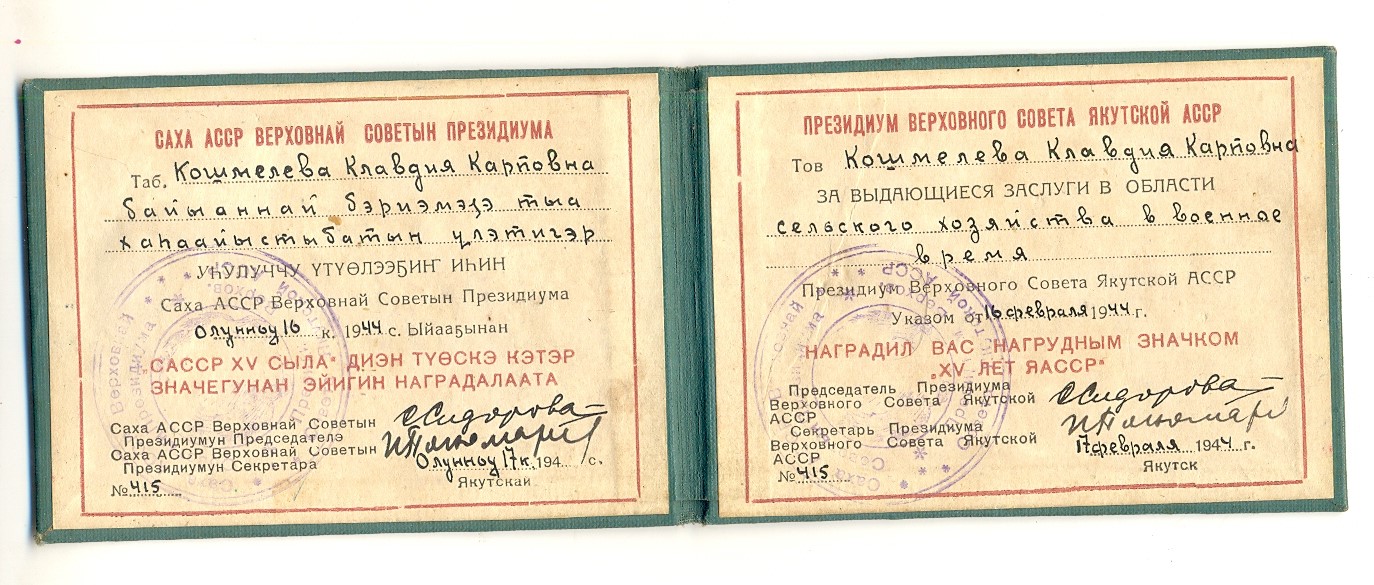 САХА АССР ВЕРХОВНАЙ СОВЕТЫН ПРЕЗИДИУМА
Таб. Кошмелева Клавдия Карповна
байыаннай бэриэмэҕэ тыа
хаһаайыстыбатын үлэтигэр
УҺУЛУЧЧУ ҮТҮӨЛЭЭҔИҤ ИҺИН
Саха АССР Верховнай Советын Президиума
Олунньу 16 к. 1944 с. Ыйааҕынан
„САССР XV СЫЛА" ДИЭН ТҮӨСКЭ КЭТЭР
ЗНАЧЕГУНАН ЭЙИГИН НАГРАДАЛААТА
Саха АССР Верховнай Советын
Президиумун Председателэ
Саха АССР Верховнай Советын
Президиумун Секретара
Олунньу 17 к. 194 с.
№ 415
Якутскай
ПРЕЗИДИУМ ВЕРХОВНОГО СОВЕТА ЯКУТСКОЙ АССР
Тов Кошмелева Клавдия Карповна
ЗА ВЫДАЮЩИЕСЯ ЗАСЛУГИ В ОБЛАСТИ
сельского хозяйства в военное
время
Президиум Верховного Совета Якутской АССР
Указом от 16 февраля 1944 г.
НАГРАДИЛ ВАС НАГРУДНЫМ ЗНАЧКОМ
„XV ЛЕТ ЯАССР"
Председатель Президиума
Верховного Совета Якутской
АССР
С Сидорова
Секретарь Президиума
Верховного Совета Якутской
АССР
17 февраля 1944 г.
№ 415
Якутск